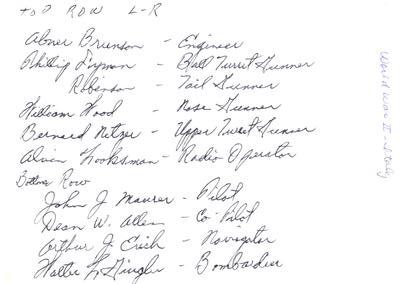 TOP ROW L-R
Abner Brunson - Engineer
Phillip - Ball Turret Gunner
Robinson - Tail Gunner
William Hood - Nose Gunner
Bernard Nitzer - Upper Turret Gunner
Alvin Hooksman - Radio Operator
Bottom Row
John J Maurer - Pilot
Dean W. Allen - Co-Pilot
Arthur J. Erich - Navigator
- Bombardier
World War II - Italy